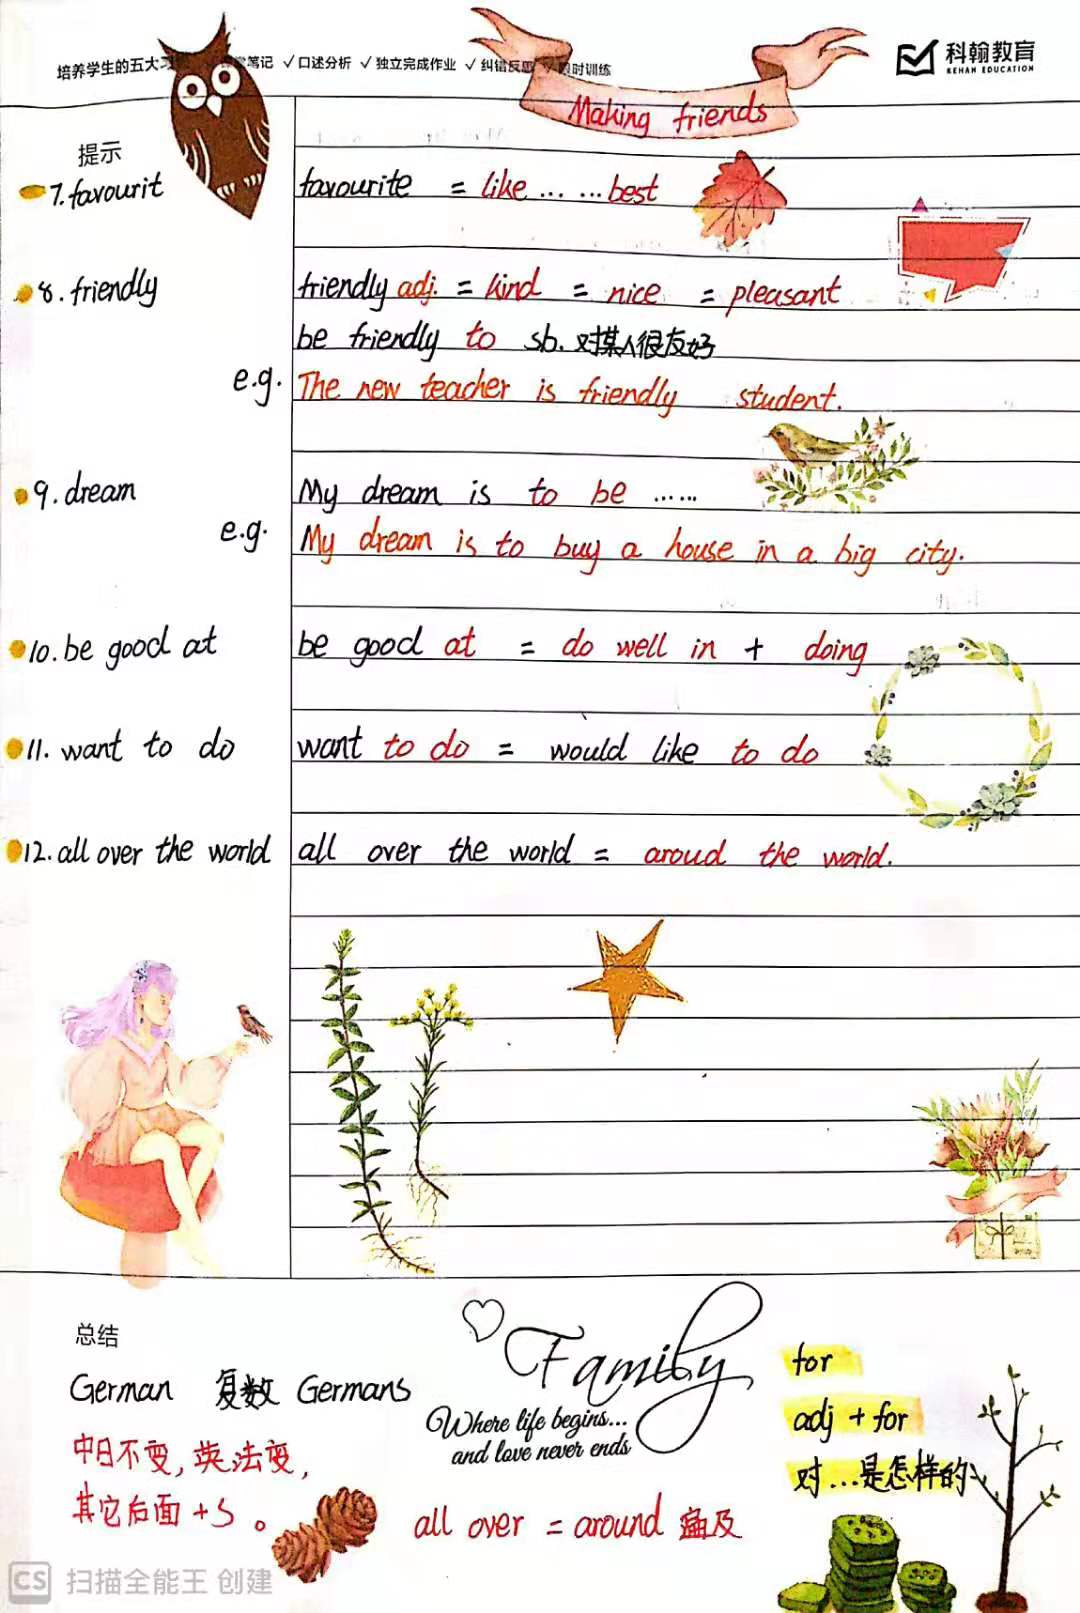 培养学生的五大习 笔记 √口述分析 √独立完成作业 √纠错反思 √限时训练
科翰教育
KEHAN EDUCATION
Making friends
提示
7.favourit favourite = like ... ... best
8.friendly friendly adj. = kind = nice = pleasant
be friendly to sb. 对某人很友好
e.g. The new teacher is friendly student.
9.dream My dream is to be ... ...
e.g. My dream is to buy a house in a big city.
10.be good at be good at = do well in + doing
11. want to do want to do = would like to do
12.all over the world all over the world = aroud the world.
总结
German 复数 Germans
中日不变,英法变,
其它后面+S。
Family
Where life begins...
and love never ends
all over = around 遍及
for
adj + for
对...是怎样的
CS 扫描全能王 创建